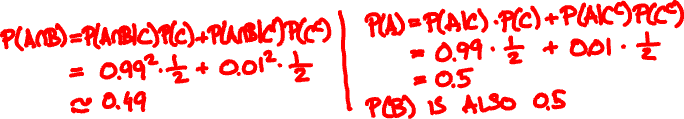 P(A∩B)=P(A∩B|C)P(C)+P(A∩B|Cᶜ)P(Cᶜ)
= 0.99²·½ + 0.01²·½
≃ 0.49
P(A)=P(A|C)·P(C)+P(A|Cᶜ)P(Cᶜ)
= 0.99·½ + 0.01·½
= 0.5
P(B) IS ALSO 0.5